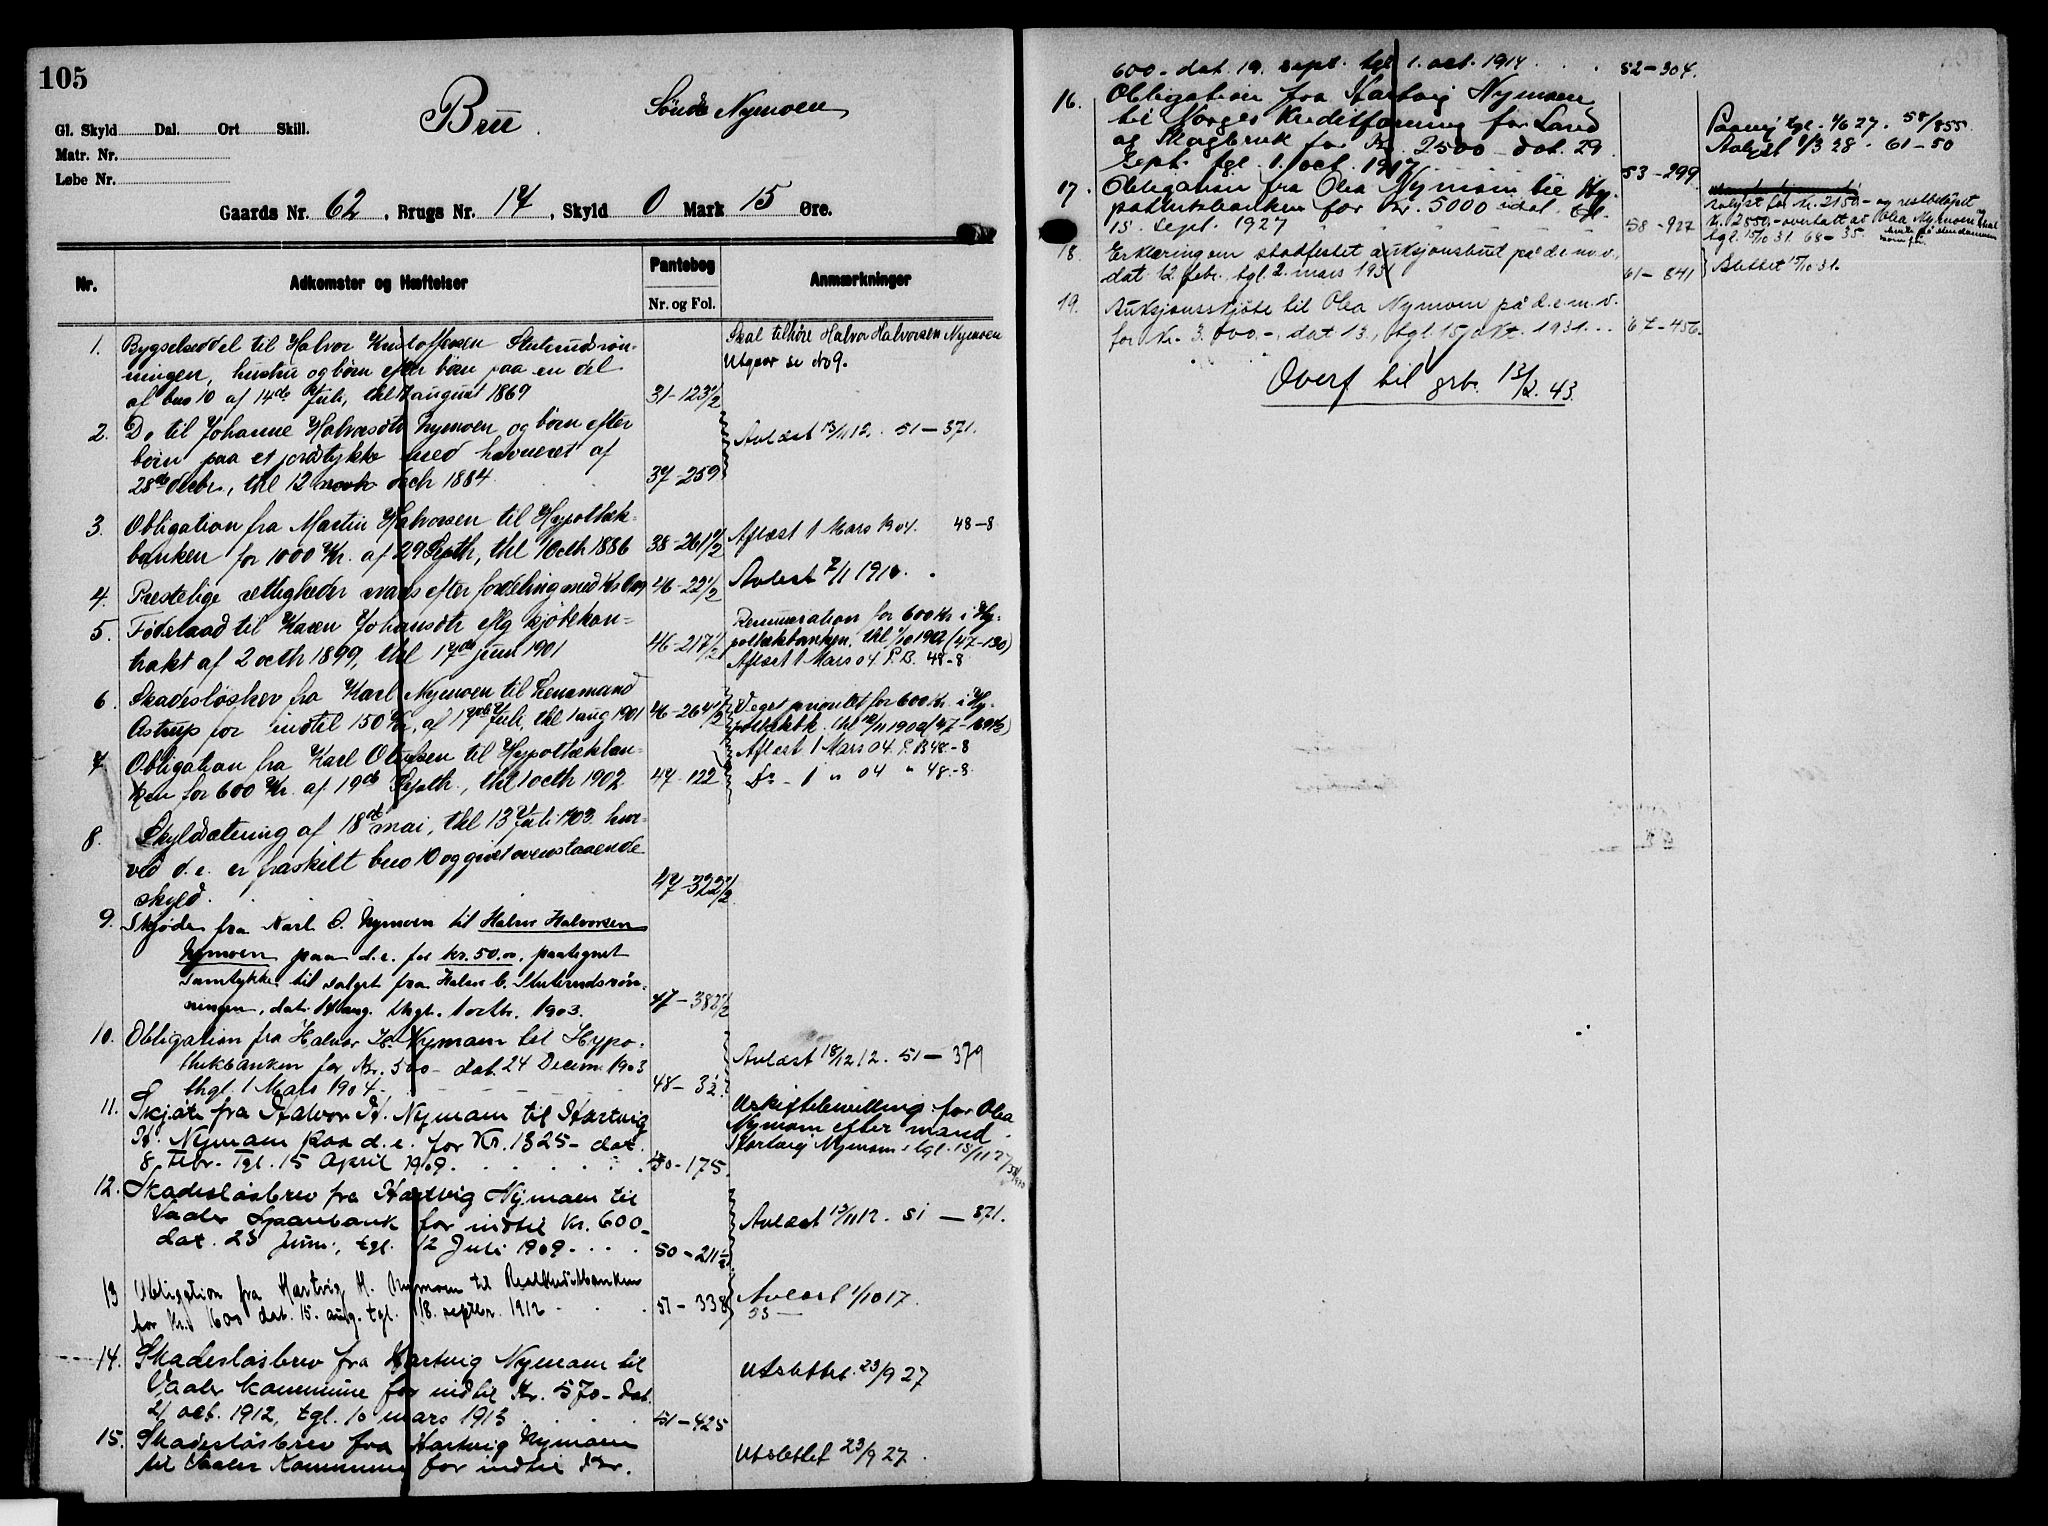 105
Bru.
Søndr Nymoen
Gl. Skyld Dal. Ort Skill.
Matr. Nr.
Løbe Nr.
Gaards Nr. 62, Brugs Nr. 14, Skyld 0 Mark 15 Øre.
Nr.
Adkomster og Hæftelser
Pantebog
Nr. og Fol.
Anmærkninger
1. Bygselseddel til Halvor Kristoffersen Sluterudsrøn-
ningen, hustru og børn efter børn paa en del
af bno 10 af 14de Juli, thl august 1869 31-123 1/2
Skal tilhøre Halvor Halvorsen Nymoen
Utgaar se No 9.
2. Do til Johanne Halvorsdtr Nymoen og børn efter
børn paa et jordstykke med havneret af
28de decbr, thl 12 decb 1884. 37-259
Avlæst 13/11 12. 51-371.
3. Obligation fra Martin Halvorsen til Hypothek-
banken for 1000 Kr. af 29 Septb, thl 1 Octb 1886 38-261 1/2
Aflæst 1 Mars 1904. 48-8
4. Prestelige rettigheder efter fordeling med 46-22 1/2
Avlæst 7/1 1910.
5. Føderaad til Karen Johansdtr iflg kjøbekon-
trakt af 2 octb 1899, thl 17de juni 1901 46-217 1/2
Renunciation for 600 Kr i Hy-
pothekbanken, thl 1/10 1902 (47-130)
Aflæst 1 Mars 04 P.B. 48-8
6. Skadesløsbrev fra Karl Nymoen til Lensmand
Astrup for indtil 150 Kr, af 17de Juli, thl 1 aug 1901 46-264 1/2
Veget prioritet for 600 Kr. i Hy-
pothekbk. thl 12/11 1902
Aflæst 1 Mars 04. P.B 48-8
7. Obligation fra Karl Olsen til Hypothekban-
ken for 600 Kr. af 19de Septb., thl 1 octb 1902. 47-122
Do - 1 " 04 " 48-8.
8. Skyldsætning af 18de mai, thl 13 Juli 1903. hvor-
ved d.e. er fraskilt bno 10 og givet ovenstaaende
skyld. 47-322 1/2
9. Skjøde fra Karl O. Nymoen til Halvor Halvorsen
Nymoen paa d.e. for kr. 50.00, paategnet
samtykke til salget fra Halvor C. Sluterudsrøn-
ningen, dat. 14 aug. thgl. 1 octb. 1903. 47-382 1/2
10. Obligation fra Halvor H. Nymoen til Hypo-
thekbanken for Kr. 500- dat. 24 Decem 1903
thgl. 1 Mars 1904. 48-3 1/2
Avlæst 18/12 12. 51-379
11. Skjøte fra Halvor H. Nymoen til Hartvig
H. Nymoen paa d.e. for Kr. 1325- dat.
8 Febr. Tgl. 15 April 1909. 50-175.
Uskiftebevilling for Olea
Nymoen efter mand
Hartvig Nymoen, tgl. 15/11 27
12. Skadesløsbrev fra Hartvig Nymoen til
Vaaler Sparebank for indtil Kr. 600-
dat. 23 Juni, tgl. 12 Juli 1909. 50-211 1/2
Avlæst 13/11 12. 51-371.
13 Obligation fra Hartvig H. Nymoen til Realkreditbanken
for Kr. 1600 dat. 15. aug. tgl. 18. septbr. 1912 51-338
Avlæst 1/10 17.
53-
14. Skadesløsbrev fra Hartvig Nymoen til
Vaaler Kommune for indtil Kr. 570- dat.
21 oct. 1912, tgl. 10 mars 1913. 51-425
Utslettet 23/9 27
15. Skadesløsbrev fra Hartvig Nymoen
til Vaaler Kommune for indtil Kr.
Utslettet 23/9 27.
600- dat. 19. sept. tgl. 1. oct. 1914. 52-304.
16. Obligation fra Hartvig Nymoen
til Norges Kreditforening for Land
og Skogbruk for Kr. 2500 dat. 29
Sept. tgl. 1. oct. 1917. 53-299
tgl. 1/6 27. 58/855.
Avlyst 1/3 28. 61-50
17. Obligation fra Olea Nymoen til Hy-
potheksbanken for kr. 5000 tgl.
15. Sept. 1927 58-927
Avlyst for kr. 2150,- og restbeløpet
kr. 2850,- overtatt av Olea Nymoen
tgl. 15/10 31. 68-35.
18. Erklæring om stadfestet auksjonsbud på d.e. m.v.,
dat. 12 febr. tgl. 2. mars 1931 61-841
Slettet 15/10 31.
19. Auksjonsskjøte til Olea Nymoen på d.e. m.v.
for kr. 3.000,-, dat 13., tgl. 15 okt. 1931. 67-456.
Overf til grb. 13/2. 43.